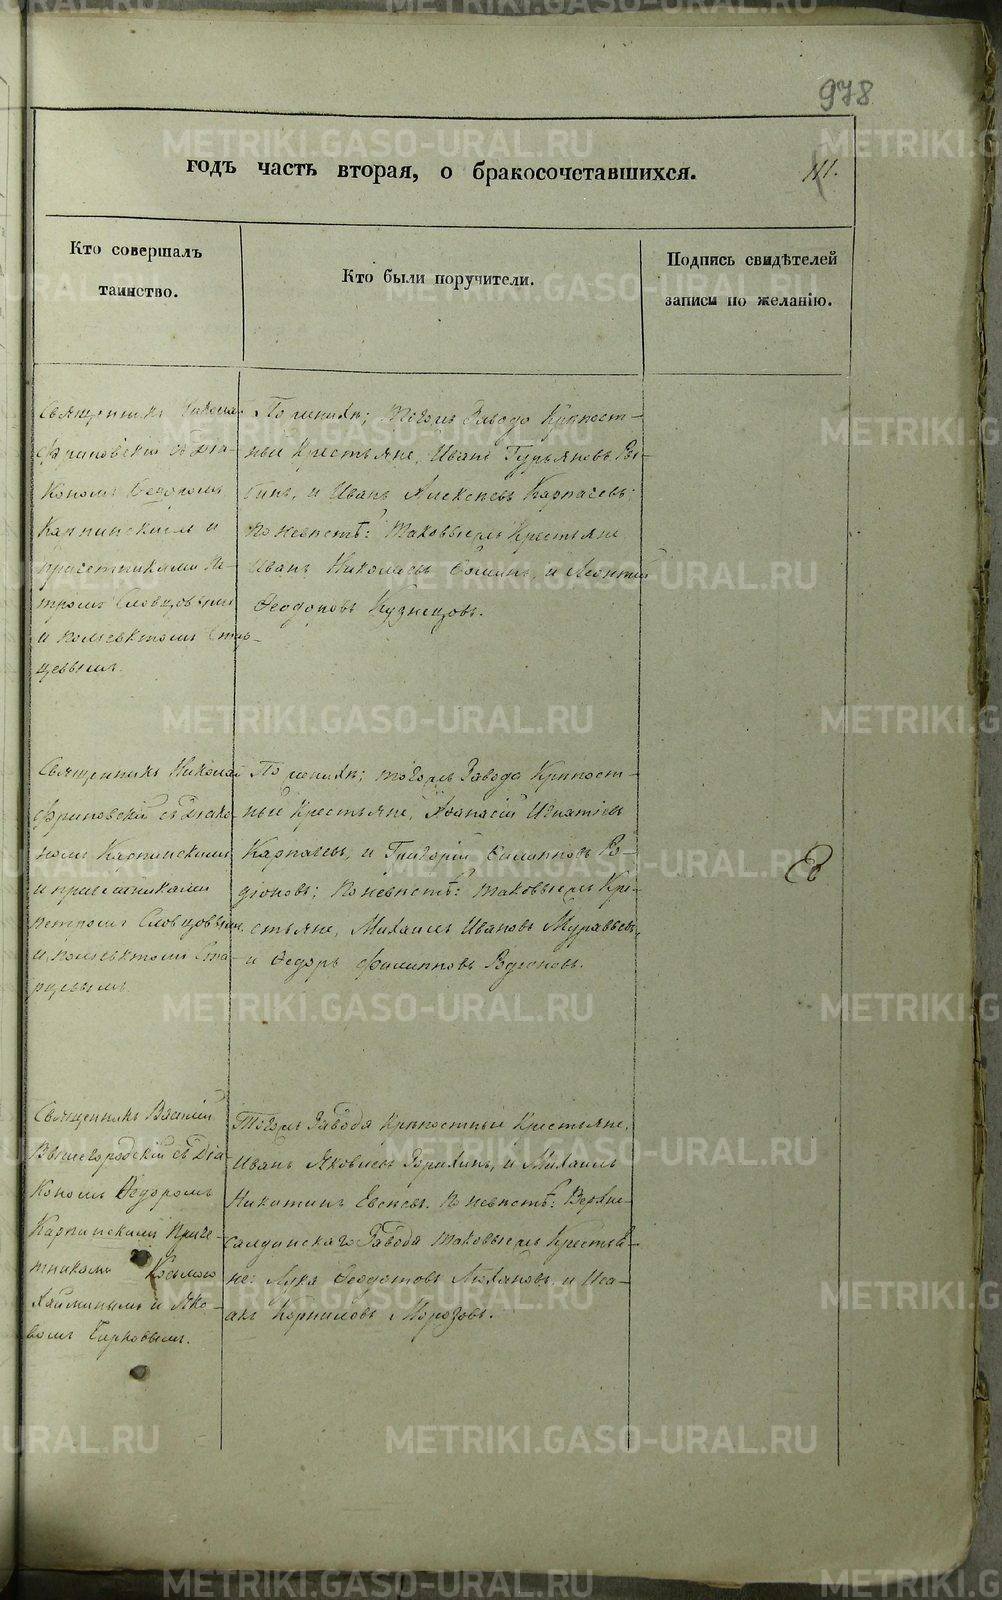 978
годъ часть вторая, о бракосочетавшихся.
Кто совершалъ
таинство.
Кто были поручители.
Подпись свидѣтелей
записи по желанію.
Священникъ Николай
съ Діа-
кономъ Ѳедоромъ
Карпинскимъ и
причетниками Пе-
тромъ Словцовымъ
и Стар-
цевымъ.
По женихѣ; тогожъ Завода Крѣпост-
ные Крестьяне, Иванъ Гурьяновъ
и Иванъ Алексѣевъ Карпачевъ;
по невѣстѣ: таковыежъ Крестьяне
Иванъ Николаевъ и Леонтій
Ѳеодоровъ Кузнецовъ.
Священникъ Николай
съ Діако-
номъ Карпинскимъ
и причетниками
Петромъ Словцовымъ
и Ста-
рцевымъ.
По женихѣ; тогожъ Завода Крѣпост-
ные Крестьяне, Аѳанасій Игнатіевъ
Карпачевъ, и Григорій Филипповъ Ро-
діоновъ; по невѣстѣ: таковыежъ Кре-
стьяне, Михаилъ Ивановъ Муравьевъ,
и Ѳедоръ Филипповъ Родіоновъ.
Священникъ Василій
Вышегородскій съ Діа-
кономъ Ѳедоромъ
Карпинскимъ Приче-
тниками Косьмою
и Яко-
вомъ
Тогожъ Завода Крѣпостные Крестьяне,
Иванъ Яковлевъ Зорихинъ, и Михаилъ
Никитинъ Евсеевъ. По невѣстѣ: Верхне-
салдинскаго Завода таковыежъ Крестья-
не: Лука Ѳеодотовъ и Иса-
акъ Корниловъ Морозовъ.
METRIKI.GASO-URAL.RU